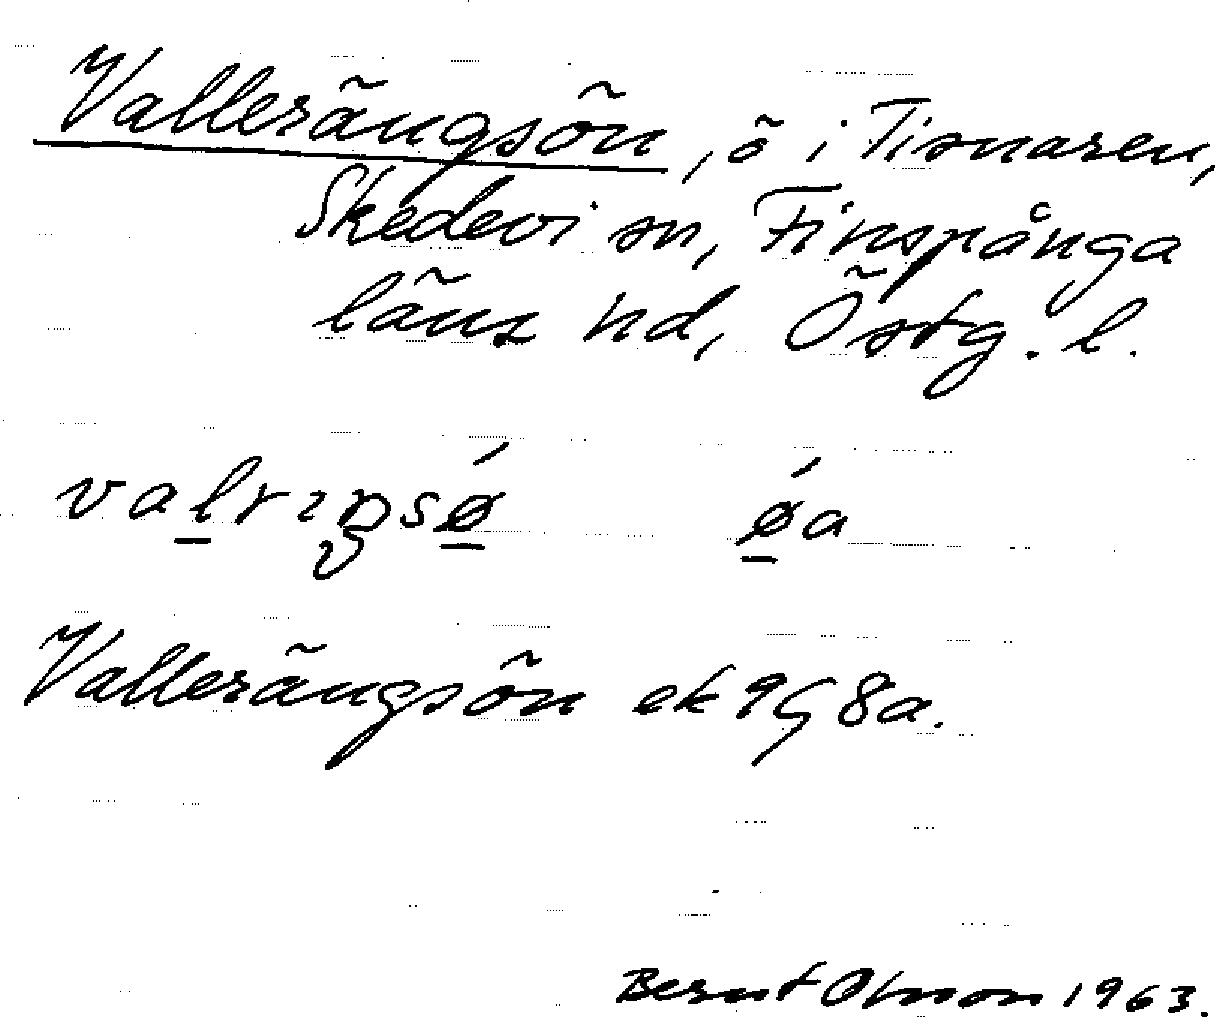 Vallerängsön, ö i Tisnaren,
Skedevi sn, Finspånga
läns hd, Östg. l.
valrɩŋsǿ̱ ǿ̱a
Vallerängsön ek 9G8a.
Bernt Olsson 1963.